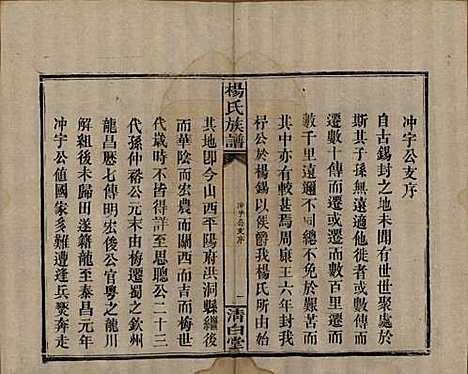 冲宇公支序
自古錫封之地未聞有世世處於
斯其子孫無遠適他徙者或數傳而
遷數十傳而或數百里遷
數千里遠邇不同總不免於艱苦而
其中亦有較甚焉周康王六年封我
杼公於楊錫以侯爵我楊氏所自始
楊氏族譜
冲宇公支序
一
清白堂
其地即今山西平陽府洪洞縣繼後
而華陰而宏農而關西而吉而梅
代歲時不皆得詳至思聰公二十三
代孫仲裕公元末由梅遷蜀之欽州
龍昌歷七傳明宏後公官粵之龍川
解組後未歸田遂籍龍至泰昌元年
冲宇公値國家多難遭逢兵燹奔走